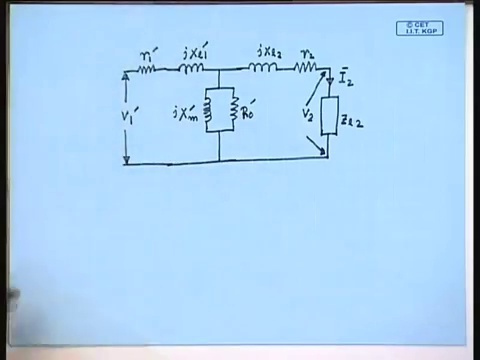 © CET
I.I.T. KGP
r₁′ jXℓ₁′ jXℓ₂ r₂
Ī₂
V₁′ jXm′ R₀′ V₂ Zℓ₂